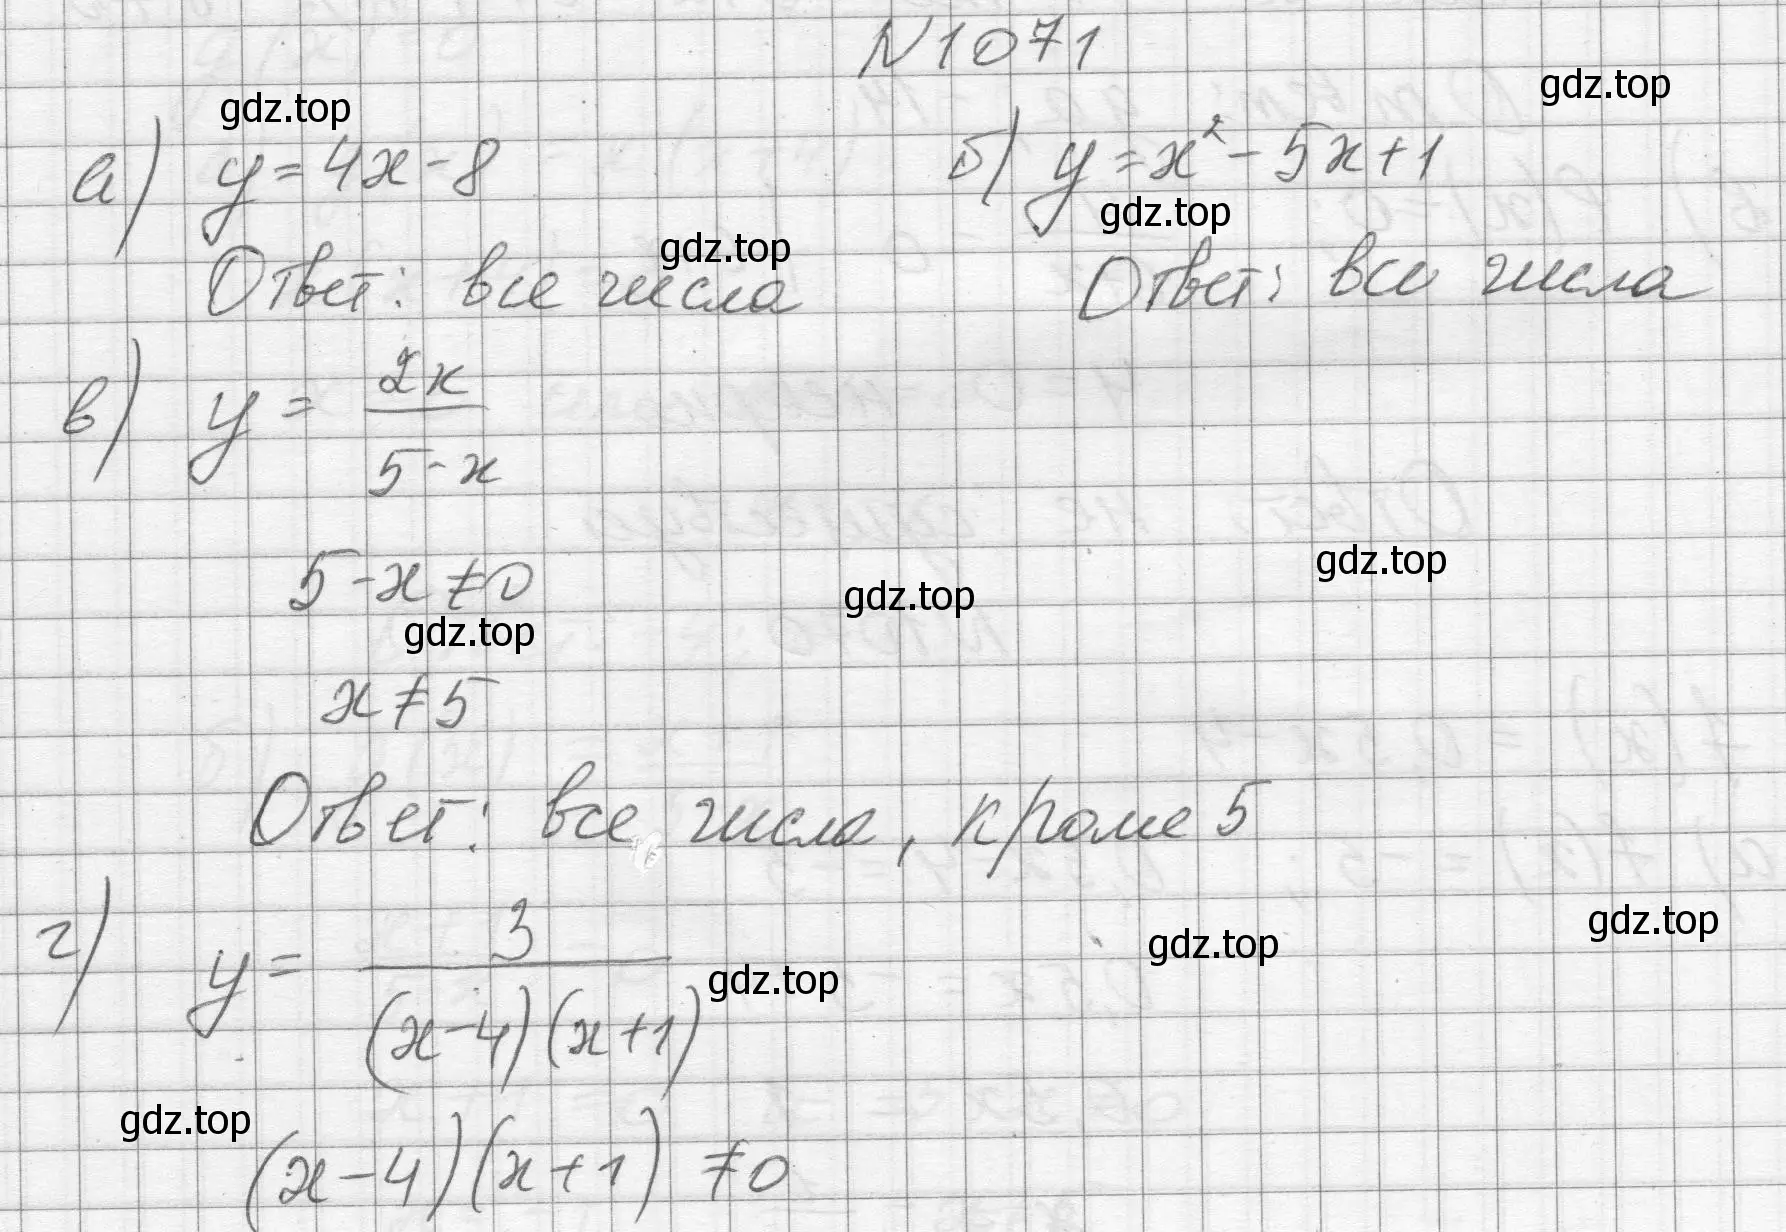 N 1071
gdz.top
gdz.top
а) y = 4x - 8
б) y = x² - 5x + 1
gdz.top
gdz.top
Ответ: все числа
Ответ: все числа
в) y = 2x / (5 - x)
5 - x ≠ 0
gdz.top
gdz.top
gdz.top
x ≠ 5
Ответ: все числа, кроме 5
г) y = 3 / ((x - 4)(x + 1))
gdz.top
gdz.top
gdz.top
gdz.top
(x - 4)(x + 1) ≠ 0